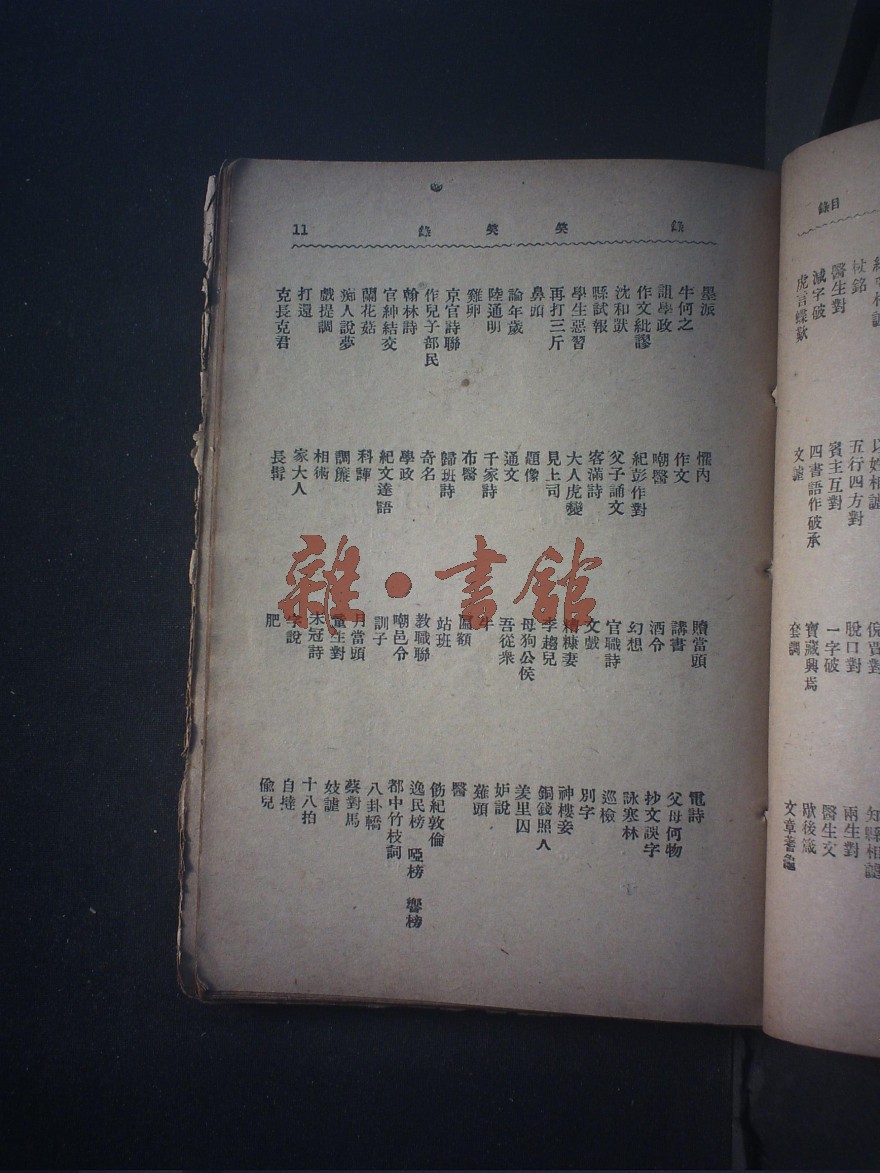 錄 笑 笑 錄 11
墨派
牛何之
詛學政
作文紕謬
沈和獃
縣試報
學生惡習
再打三斤
鼻頭
論年歲
陸通明
雞卵
京官詩聯
作兒子部民
翰林詩
官紳結交
蘭花菇
痴人說夢
戲提調
打還
克長克君
懼內
作文
嘲醫
紀彭作對
父子誦文
客滿詩
大人虎變
見上司
題像
通文
千家詩
布醫
歸班詩
奇名
學政
紀文達語
科諢
調簾
相術
家大人
長髯
贖當頭
講書
酒令
幻想
官職詩
文戲
糟糠妻
李趙兒
母狗公侯
吾從衆
牛
匾額
站班
教職聯
嘲邑令
訓子
月當頭
童生對
未冠詩
字說
肥
電詩
父母何物
抄文誤字
詠寒林
巡檢
別字
神樓妾
銅錢照人
羑里囚
妒說
薙頭
醫
仿紀敦倫
逸民榜 啞榜 響榜
都中竹枝詞
八卦轎
蔡對馬
妓謔
十八拍
自撻
偸兒
目錄
杖銘
醫生對
減字破
虎言蝶歎
以姓相謔
五行四方對
賓主互對
四書語作破承
文謔
倪賈對
脫口對
一字破
寶藏興焉
套調
知縣相謔
兩生對
醫生文
歇後箴
文章著
雜·書館